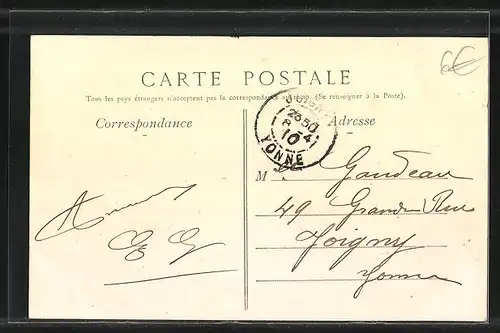 6€
CARTE POSTALE
Tous les pays étrangers n'acceptent pas la correspondance au recto. (Se renseigner à la Poste).
Correspondance
Adresse
23 50
8-4
10
YONNE
M Gaudeau
49 Grande Rue
Joigny
Yonne